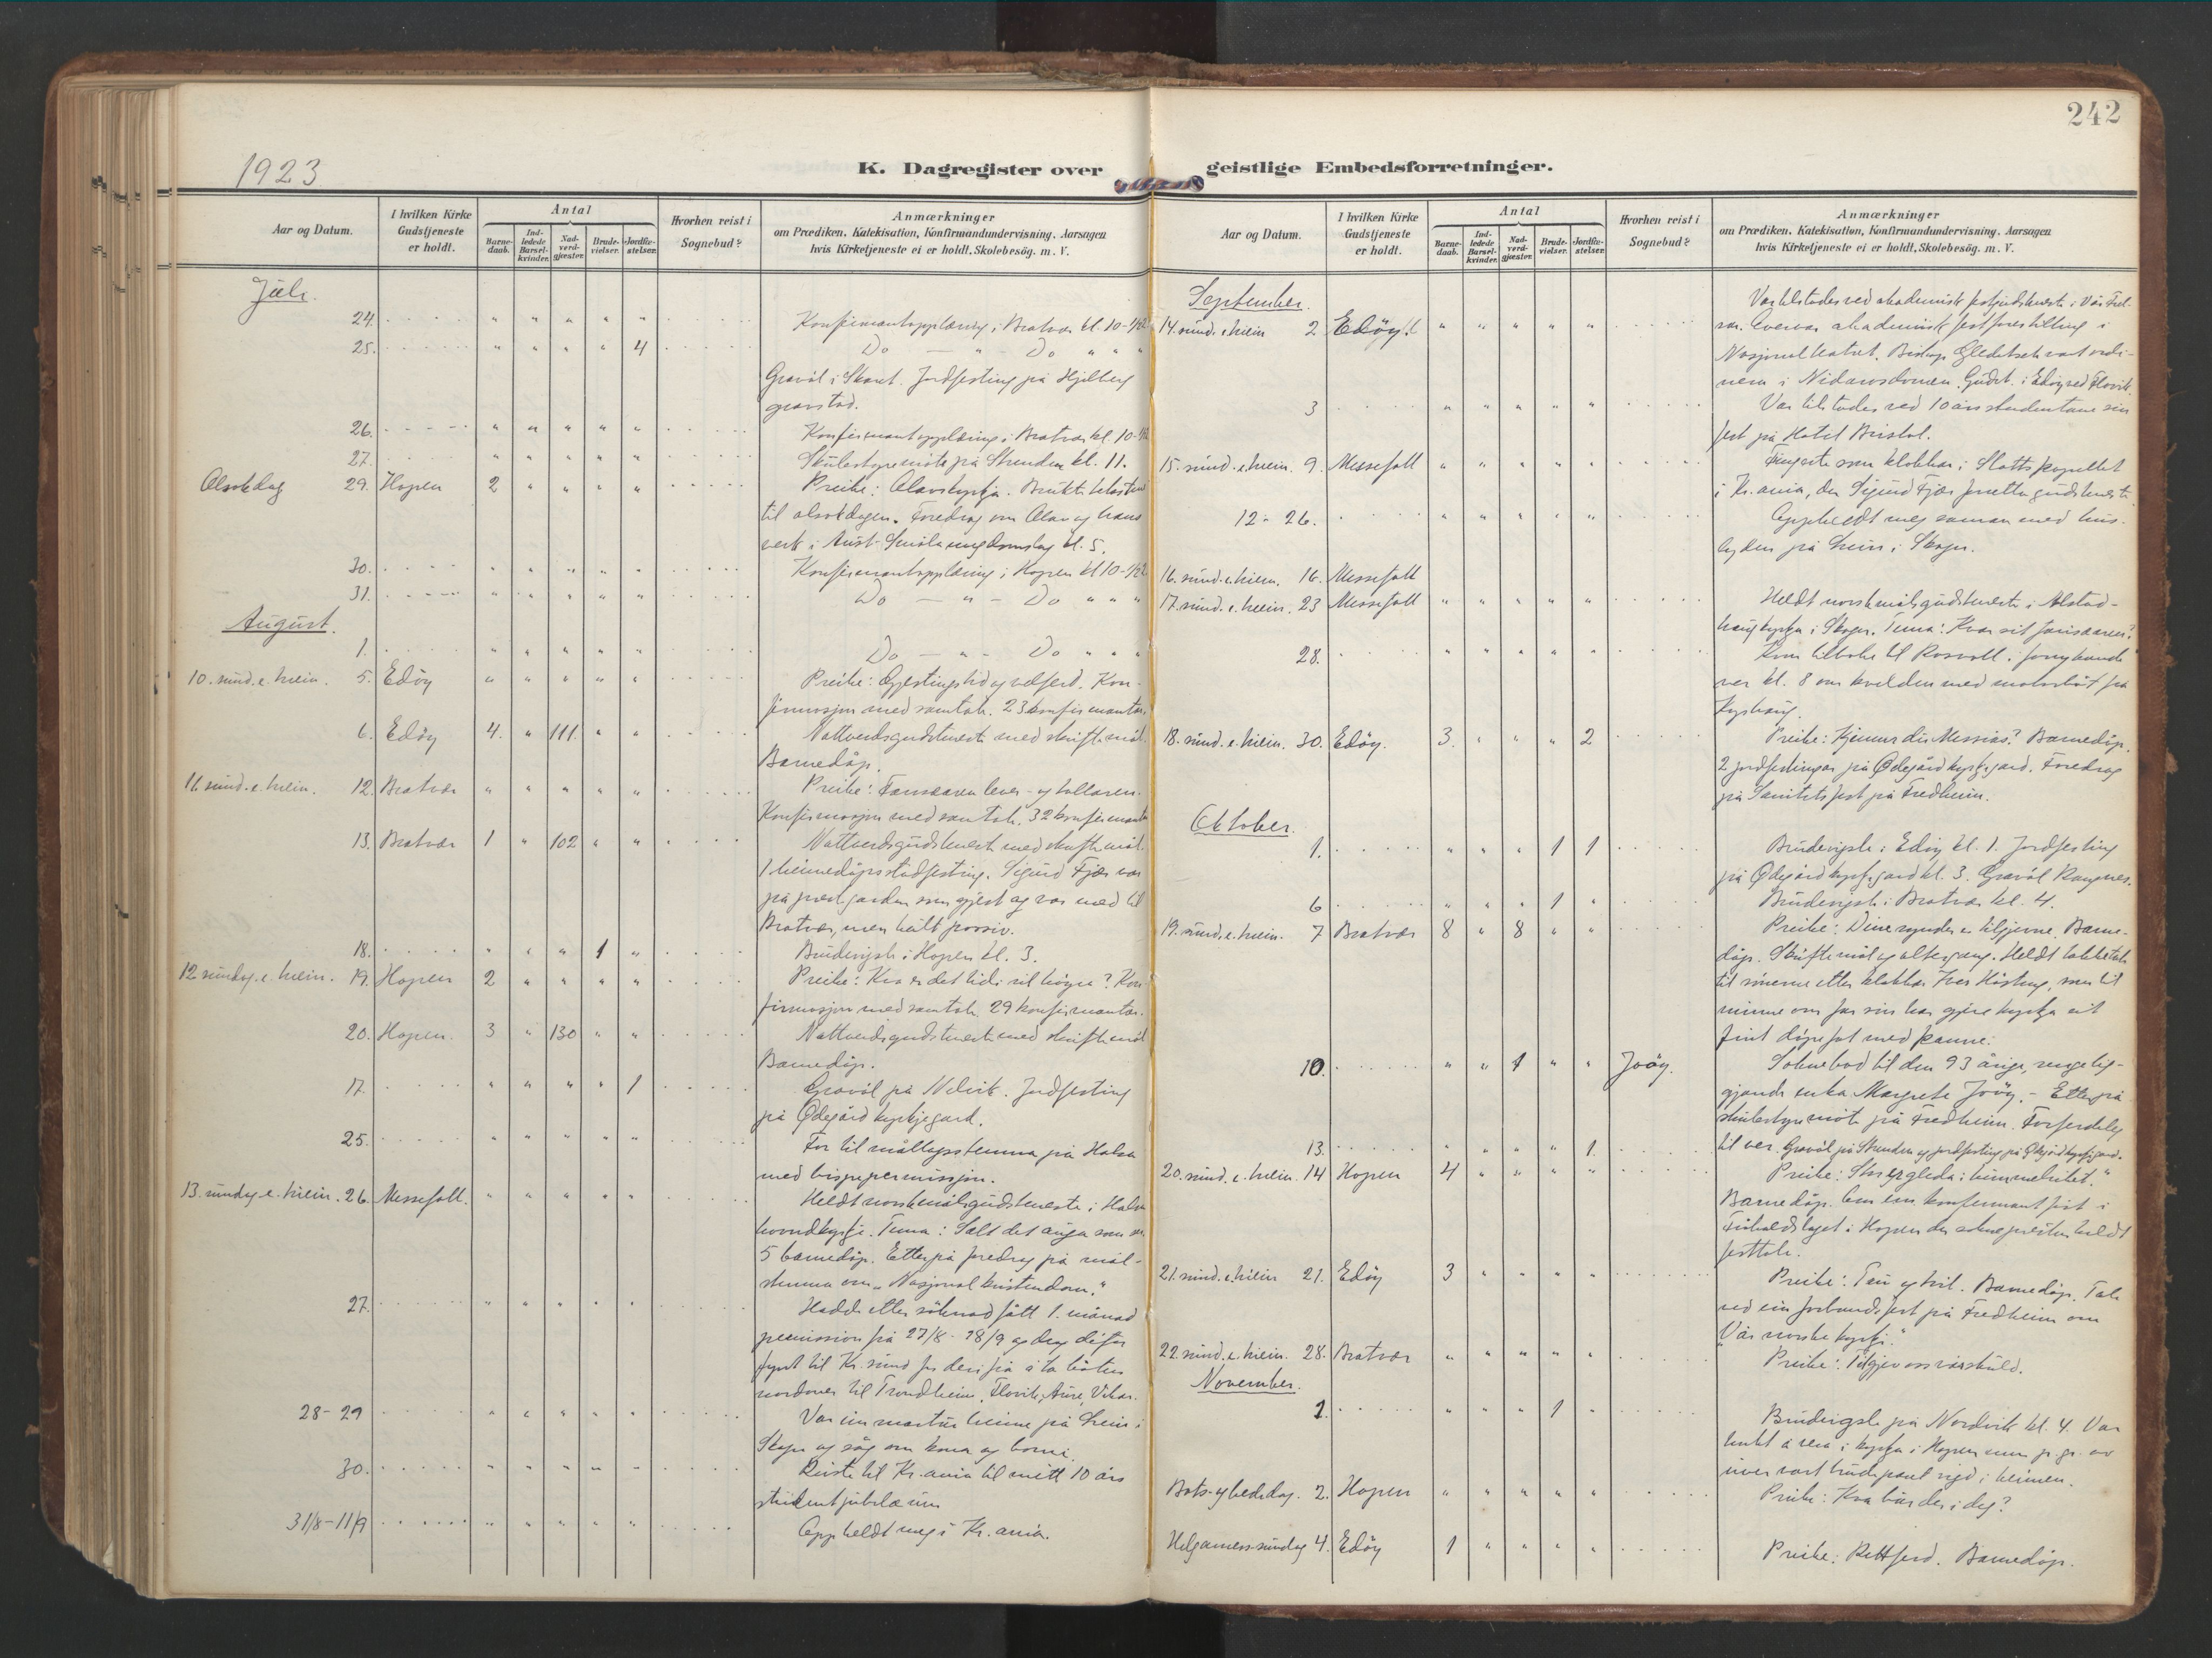 242
1923
K. Dagregister over geistlige Embedsforretninger.
Aar og Datum.
I hvilken Kirke Gudstjeneste er holdt.
Antal
Barnedaab.
Indledede Barselkvinder.
Nadverdgjæster.
Brudevielser.
Jordfæstelser.
Hvorhen reist i Sognebud?
Anmærkninger
om Prædiken, Katekisation, Konfirmandundervisning, Aarsagen
hvis Kirketjeneste ei er holdt, Skolebesög. m. V.
Juli.
24. Konfirmantopplæring i Bratvær kl. 10-1/22
25. " " " " 4 Do — " — Do " " "
Gravöl i Skant. Jordfesting på Hjelberg
gravstad.
26. Konfirmantopplæring i Bratvær kl. 10-1/2
27. Skulestyremöte på Strenden kl. 11.
Olsokdag 29. Hopen 2 " " " " Preike: Olavskyrkja.
til olsokdagen. Foredrag om Olav og hans
verk i Aust-Smöla ungdomslag kl. 5.
30. Konfirmantopplæring i Hopen kl 10-1/22
31. Do — " — Do " " "
August.
1. Do — " — Do " " "
10. sund. e. trein. 5. Edöy Preike: Gjestingstid og velferd. Kon-
firmasjon med samtale. 23 konfirmantar.
6. Edöy 4. " 111. " " Nattverdsgudsteneste med skriftemål.
Barnedåp.
11. sund. e. trein. 12. Bratvær Preike: Fariseeren lever - og tollaren.
Konfirmasjon med samtale. 32 konfirmanta
13. Bratvær 1 " 102 " " Nattverdsgudsteneste med skriftemål.
1 heimedåpsstadfesting. Sigurd Fjær var
på prestgarden som gjest og var med til
Bratvær, men heilt passiv.
18. " " " 1 " Brudevigsle i Hopen kl. 3.
12 sundag. e. trein. 19. Hopen 2 " " " " Preike: Kva er det tidi vil höyra? Kon-
firmasjon med samtale. 29 konfirmantar.
20. Hopen. 3 " 130 " " Nattverdsgudsteneste med skriftemål
Barnedåp.
17. " " " " 1 Gravöl på Nelvik. Jordfesting
på Ödegård kyrkjegard.
25. For til mållagsstemna på Halsa
med bispepermisjon.
13. sundag e. trein. 26. Messefall. Heldt norskmålsgudsteneste i Halsa
hovudkyrkje. Tema: Sælt det auga som ser
5 barnedåp. Etterpå foredrag på mål-
stemna om „Nasjonal kristendom."
27. Hadde etter söknad fått 1. månad
permission frå 27/8 - 28/9 og drog difor
fyrst til Kr. sund for derifrå å ta båten
nordover til Trondheim. Flovik, Aure, Vikar.
28-29 Var ein snartur heime på Lein i
Skogn og såg om kona og borni.
30. Reiste til Kr.ania til mitt 10 års
studentjubilæum
31/8-11/9 Oppheldt meg i Kr.ania.
September.
14. sund. e. trein 2 Edöy. Var tilstades ved akademisk festgudsteneste i Vår Frel-
sar. Overvar akademisk festforestilling i
Nasjonalteatret. Biskop Gleditsch vart ordi-
nera i Nidarosdomen. Gudst. i Edöy ved Flovik.
3 Var tilstades ved 10 års studentane sin
fest på Hotel Bristol.
15. sund. e. trein. 9. Messefall Fungerte som klokkar i Slottskapellet
i Kr.ania, der Sigurd Fjær forretta gudsteneste
12-26. Oppheldt meg saman med hus-
lyden på Lein i Skogn.
16. sund. e. trein. 16. Messefall
17. sund. e. trein. 23 Messefall Heldt norskmålsgudsteneste i Alstad-
haug kyrkja i Skogn. Tema: Kvar vit fariseeren?
28. Kom tilbake til Rosvoll i forrykande
ver kl. 8 om kvelden med motorbåt frå
Kyrhaug.
18. sund. e. trein. 30. Edöy. 3. " " " 2 Preike: Kjenner du Messias? Barnedåp.
2 jordfestingar på Ödegård kyrkjegard. Foredrag
på Sanitetsfest på Fredheim.
Oktober.
1. " " " 1 1 Brudevigsle i Edöy kl. 1. Jordfesting
på Ödegård kyrkjegard kl. 3. Gravöl Rangnes.
6 " " " 1 " Brudevigsle i Bratvær kl. 4.
19. sund. e. trein. 7 Bratvær 8 " 8 " " Preike: Dine synder er tilgjevne. Barne-
dåp. Skriftemål og altergang. Heldt takketale
til sönene etter klokkar Iver Hösteng, som til
minne om far sin har gjeve kyrkja eit
fint döpefat med kanne.
10. " " 1 " " Joöy. Soknebod til den 93 årige, sengelig-
gjande enka Margrete Joöy. - Etterpå
skulestyremöte på Fredheim. Forferdeleg
13. " " " " 1. til ver. Gravöl på Strenden og jordfesting på Ödegård kyrkjegard.
20. sund. e. trein. 14 Hopen 4 " " " " Preike: „Stor er gleda i himmelriket."
Barnedåp.
festtale.
21. sund. e. trein 21. Edöy 3 " " " " Preike: Tru og tvil. Barnedåp. Tale
ved ein forbundsfest på Fredheim om
„Vår norske kyrkje."
22. sund. e. trein. 28. Bratvær Preike: Tilgjev oss vår skuld.
November.
1. " " " 1 " Brudevigsle på Nordvik kl. 4. Var
tenkt å vera i kyrkja i Hopen men p. gr. av
uver vart brudeparet vigd i heimen.
Bots- og bededag. 2. Hopen Preike: Kva bur der i deg?
Helgamess-sundag 4. Edöy 1 " " " " Preike: Rettferd. Barnedåp.